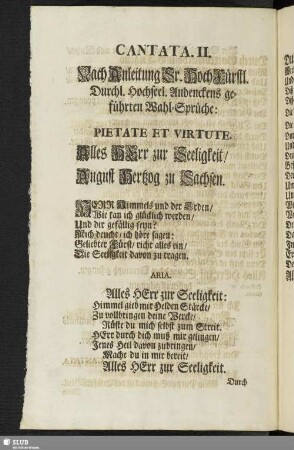 CANTATA. II.
Nach Anleitung Sr. Hoch Fürstl.
Durchl. Hochseel. Andenckens ge-
führten Wahl-Sprüche:
PIETATE ET VIRTUTE.
Alles HErr zur Seeligkeit/
August Hertzog zu Sachsen.
HERR Himmels und der Erden/
Wie kan ich glücklich werden/
Und dir gefällig seyn?
Mich deucht/ ich höre sagen:
Geliebter Fürst/ richt alles ein/
Die Seeligkeit davon zu tragen.
ARIA.
Alles HErr zur Seeligkeit:
Himmel gieb mir Helden Stärcke/
Zu vollbringen deine Wercke/
Rüste du mich selbst zum Streit.
HErr durch dich muß mir gelingen/
Jenes Heil davon zubringen/
Mache du in mir bereit/
Alles HErr zur Seeligkeit.
Durch
SLUB